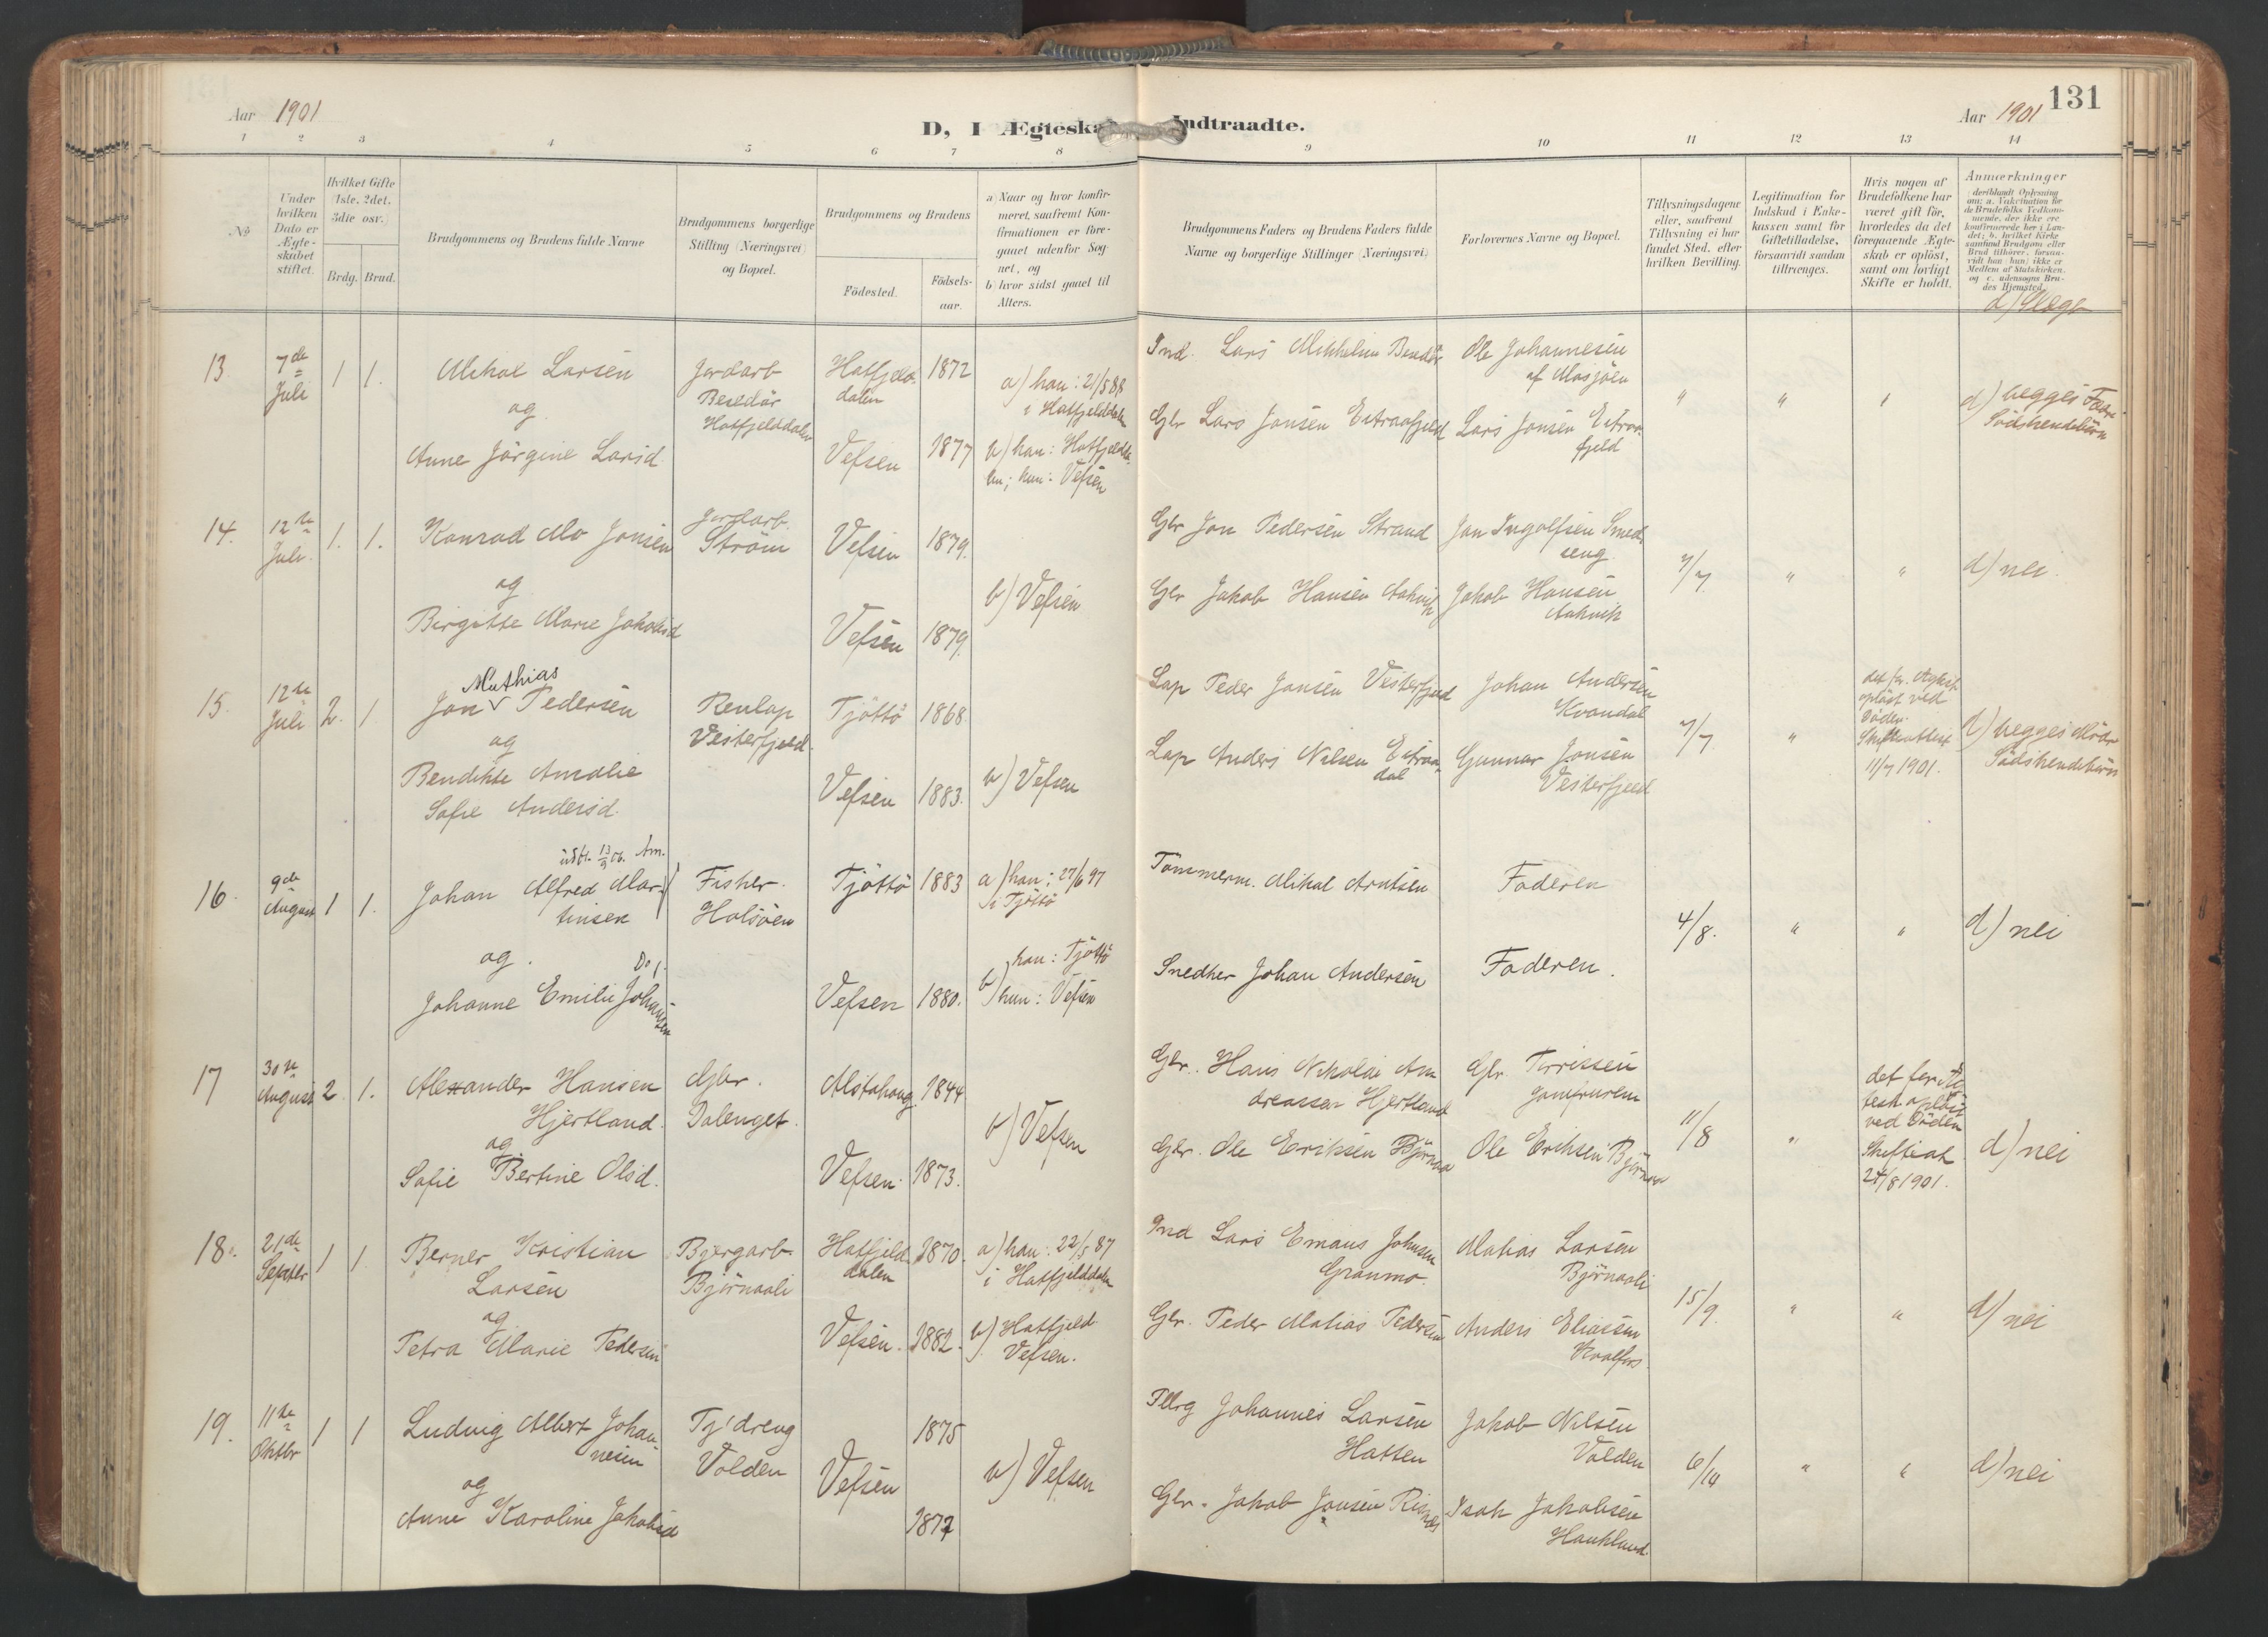 Aar 1901
D, I Ægteskab Indtraadte.
Aar 1901
131
1 2 3 4 5 6 7 8 9 10 11 12 13 14
No
Under hvilken Dato er Ægteskabet stiftet.
Hvilket Gifte (1ste, 2det, 3die osv.)
Brdg. Brud.
Brudgommens og Brudens fulde Navne
Brudgommens borgerlige Stilling (Næringsvei) og Bopæl.
Brudgommens og Brudens
Födested.
Födselsaar.
a) Naar og hvor konfirmeret, saafremt Konfirmationen er foregaaet udenfor Sognet, og
b) hvor sidst gaaet til Alters.
Brudgommens Faders og Brudens Faders fulde Navne og borgerlige Stillinger (Næringsvei)
Forlovernes Navne og Bopæl.
Tillysningsdagene eller, saafremt Tillysning ei har fundet Sted, efter hvilken Bevilling.
Legitimation for Indskud i Enkekassen samt for Giftetilladelse, forsaavidt saadan tiltrænges.
Hvis nogen af Brudefolkene har været gift för, hvorledes da det foregaaende Ægteskab er oplöst, samt om lovligt Skifte er holdt.
Anmærkninger (deriblandt Oplysning om: a. Vakcination för de Brudefolks Vedkommende, der ikke ere konfirmerede her i Landet; b. hvilket Kirkesamfund Brudgom eller Brud tilhörer, forsaavidt han (hun) ikke er Medlem af Statskirken, og c. udensogns Brudes Hjemsted.
d) Slægt
13
7de Juli
1 1.
Mikal Larsen
og
Anne Jörgine Larsd
Jordarb
Hatfjelddalen
Hatfjelddalen 1872
Vefsen 1877
a) han: 21/5 88 i Hatfjelddalen
b) han: Hatfjelddalen; hun: Vefsen
Ind. Lars Mikkelsen
Gbr Lars Jonsen Eitraafjeld
Ole Johannesen af Mosjöen
Lars Jonsen Eitraafjeld
" " "
d) begges Fædre Södskendebörn
14.
12te Juli.
1. 1.
Konrad Mo Jonsen
og
Birgitte Marie Jakobsd
Jordarb.
Ström
Vefsen 1879.
Vefsen 1879.
b) Vefsen
Gbr Jon Pedersen Strand
Gbr Jakob Hansen Aakvik
Jon Ingolfsen Smedseng
Jakob Hansen Aakvik
7/7 " "
d) nei.
15.
12te Juli
2. 1
Jon Mathias Pedersen
og
Bendikte Amalie
Sofie Andersd.
Renlap
Vesterfjeld.
Tjöttö 1868.
Vefsen 1883.
b) Vefsen
Lap Peder Jonsen Vesterfjeld
Lap Anders Nilsen Eitraadal
Johan Andersen Kvandal
Gunnar Jonsen Vesterfjeld
7/7 "
det for. Ægtesk. oplöst ved Döden. Skifteattest 11/7 1901.
d) begges Mödre Södskendebörn
16.
9de August
1 1.
udst. 13/9 06. Am.
Johan Alfred Martinsen
og.
Do /.
Johanne Emilie Johansen
Fisker.
Halsöen
Tjöttö 1883
Vefsen 1880.
a) han: 27/6 97 i Tjöttö
b) han: Tjöttö
hun: Vefsen
Tömmerm. Mikal Arntsen
Snedker Johan Andersen
Faderen
Faderen.
4/8. " "
d) nei
17
30te August
2. 1.
Alexander Hansen
Hjertland.
og
Sofie Bertine Olsd.
Gbr.
Dalenget.
Alstahaug. 1844
Vefsen. 1873.
b) Vefsen
Gbr. Hans Nikolai Andreassen Hjertland
Gbr. Ole Eriksen Björnaa
Gbr. Torrissen Jomfruren
Ole Eriksen Björnaa
11/8 "
det for Ægtesk. oplöst ved Döden Skifteat 24/8 1901.
d) nei
18.
21de Septbr
1 1
Berner Kristian
Larsen
og
Petra Marie Pedersen
Bjergarb.
Björnaali
Hatfjelddalen 1870.
Vefsen. 1882.
a) han: 22/5 87 i Hatfjelddalen
b) Hatfjeld. Vefsen.
Ind Lars Emaus Johnsen Granmo.
Gbr. Peder Matias Pedersen
Matias Larsen Björnaali
Anders Eliassen Kvalfors.
15/9. " "
d) nei
19.
11te Oktbr
1 1
Ludvig Albert Johannesen
og
Anne Karoline Jakobsd
Tj'dreng
Volden
Vefsen
1875
1877
b) Vefsen
Johannes Larsen Hatten
Gbr. Jakob Jonsen
Jakob Nilsen Volden
Isak Jakobsen Haukland.
6/10 " "
d) nei